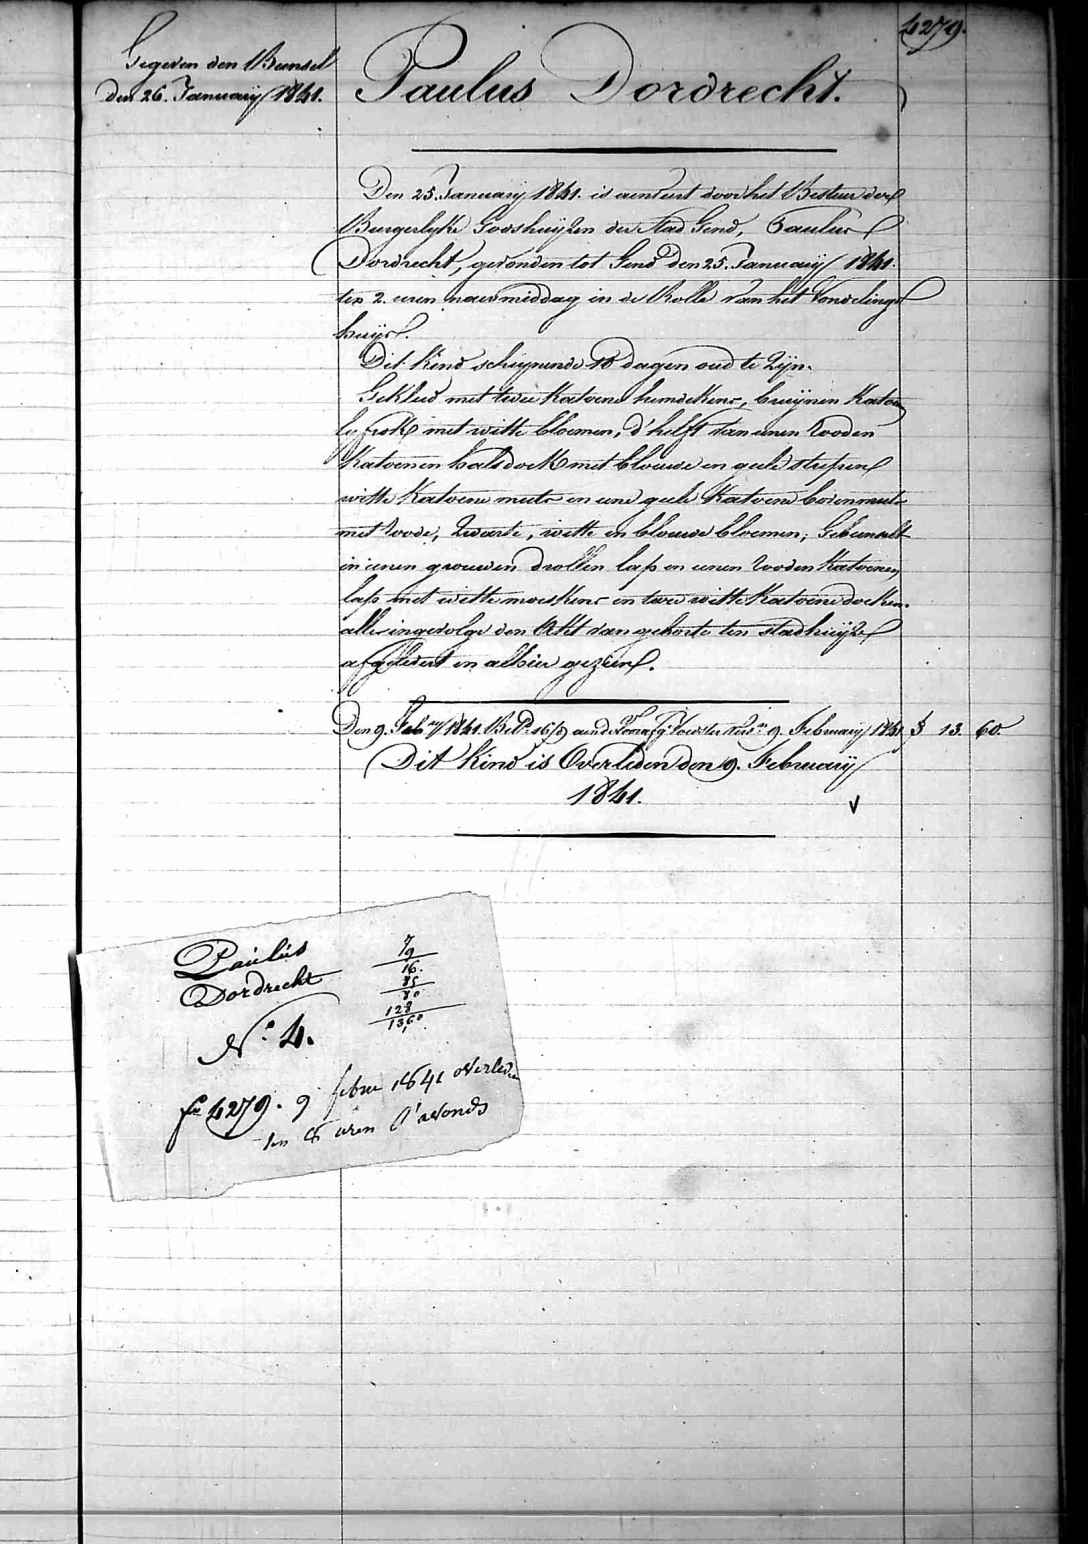 4279.
Gegeven den Bunsel
den 26. Januarij 1841.
Paulus Dordrecht.
Den 25. Januarij 1841. is aenveert door het Bestuer der
Burgerlyke Godshuijzen der stad Gend, Paulus
Dordrecht, gevonden tot Gend den 25. Januarij 1841.
ten 2. uren naermiddag in de Rolle van het Vondelings
huijs.
Dit kind schijnende 10 dagen oud te zijn.
Gekleed met twee katoene hemdekens, bruijnen katoe
lijfrok met witte bloemen, d'helft van eenen rooden
katoenen halsdoek met blouwe en geele strepen
witte katoene muts en eene geele katoene bovenmuts
met roode, zwarte, witte en blouwe bloemen, Gebunselt
in eenen grouwen drollen lap en eenen rooden katoenen
lap met witte moeskens en twee witte katoene doeken.
alles ingevolge den Akt van geboorte ten stadhuijze
afgelevert en alhier gezien.
Den 9. Feb.ry 1841. Bet.d 16/9 aen de voedster 9. February 1841 § 13. 60.
Dit kind is Overleden den 9. February
1841.
V
Paulus
Dordrecht
N.o 4.
7/9
16.
85
80
128
1360
f.o 4279. 9 febru 1841 overleden
ten 8 uren s'avonds